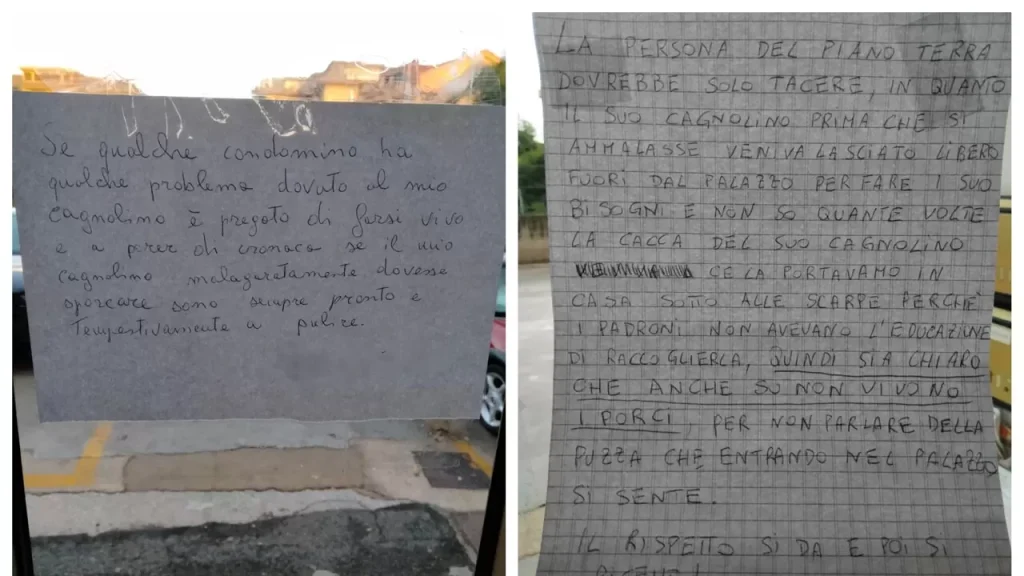 Se qualche condomino ha
qualche problema dovuto al mio
cagnolino è pregato di farsi vivo
e a perer di cronaca se il mio
cagnolino malaguratamente dovesse
sporcare sono sempre pronto e
Tempestivamente a pulire.
LA PERSONA DEL PIANO TERRA
DOVREBBE SOLO TACERE, IN QUANTO
IL SUO CAGNOLINO PRIMA CHE SI
AMMALASSE VENIVA LASCIATO LIBERO
FUORI DAL PALAZZO PER FARE I SUO
BISOGNI E NON SO QUANTE VOLTE
LA CACCA DEL SUO CAGNOLINO
CE LA PORTAVAMO IN
CASA SOTTO ALLE SCARPE PERCHÈ
I PADRONI NON AVEVANO L'EDUCAZIONE
DI RACCOGLIERLA, QUINDI SIA CHIARO
CHE ANCHE SU NON VIVONO
I PORCI, PER NON PARLARE DELLA
PUZZA CHE ENTRANDO NEL PALAZZO
SI SENTE.
IL RISPETTO SI DA E POI SI